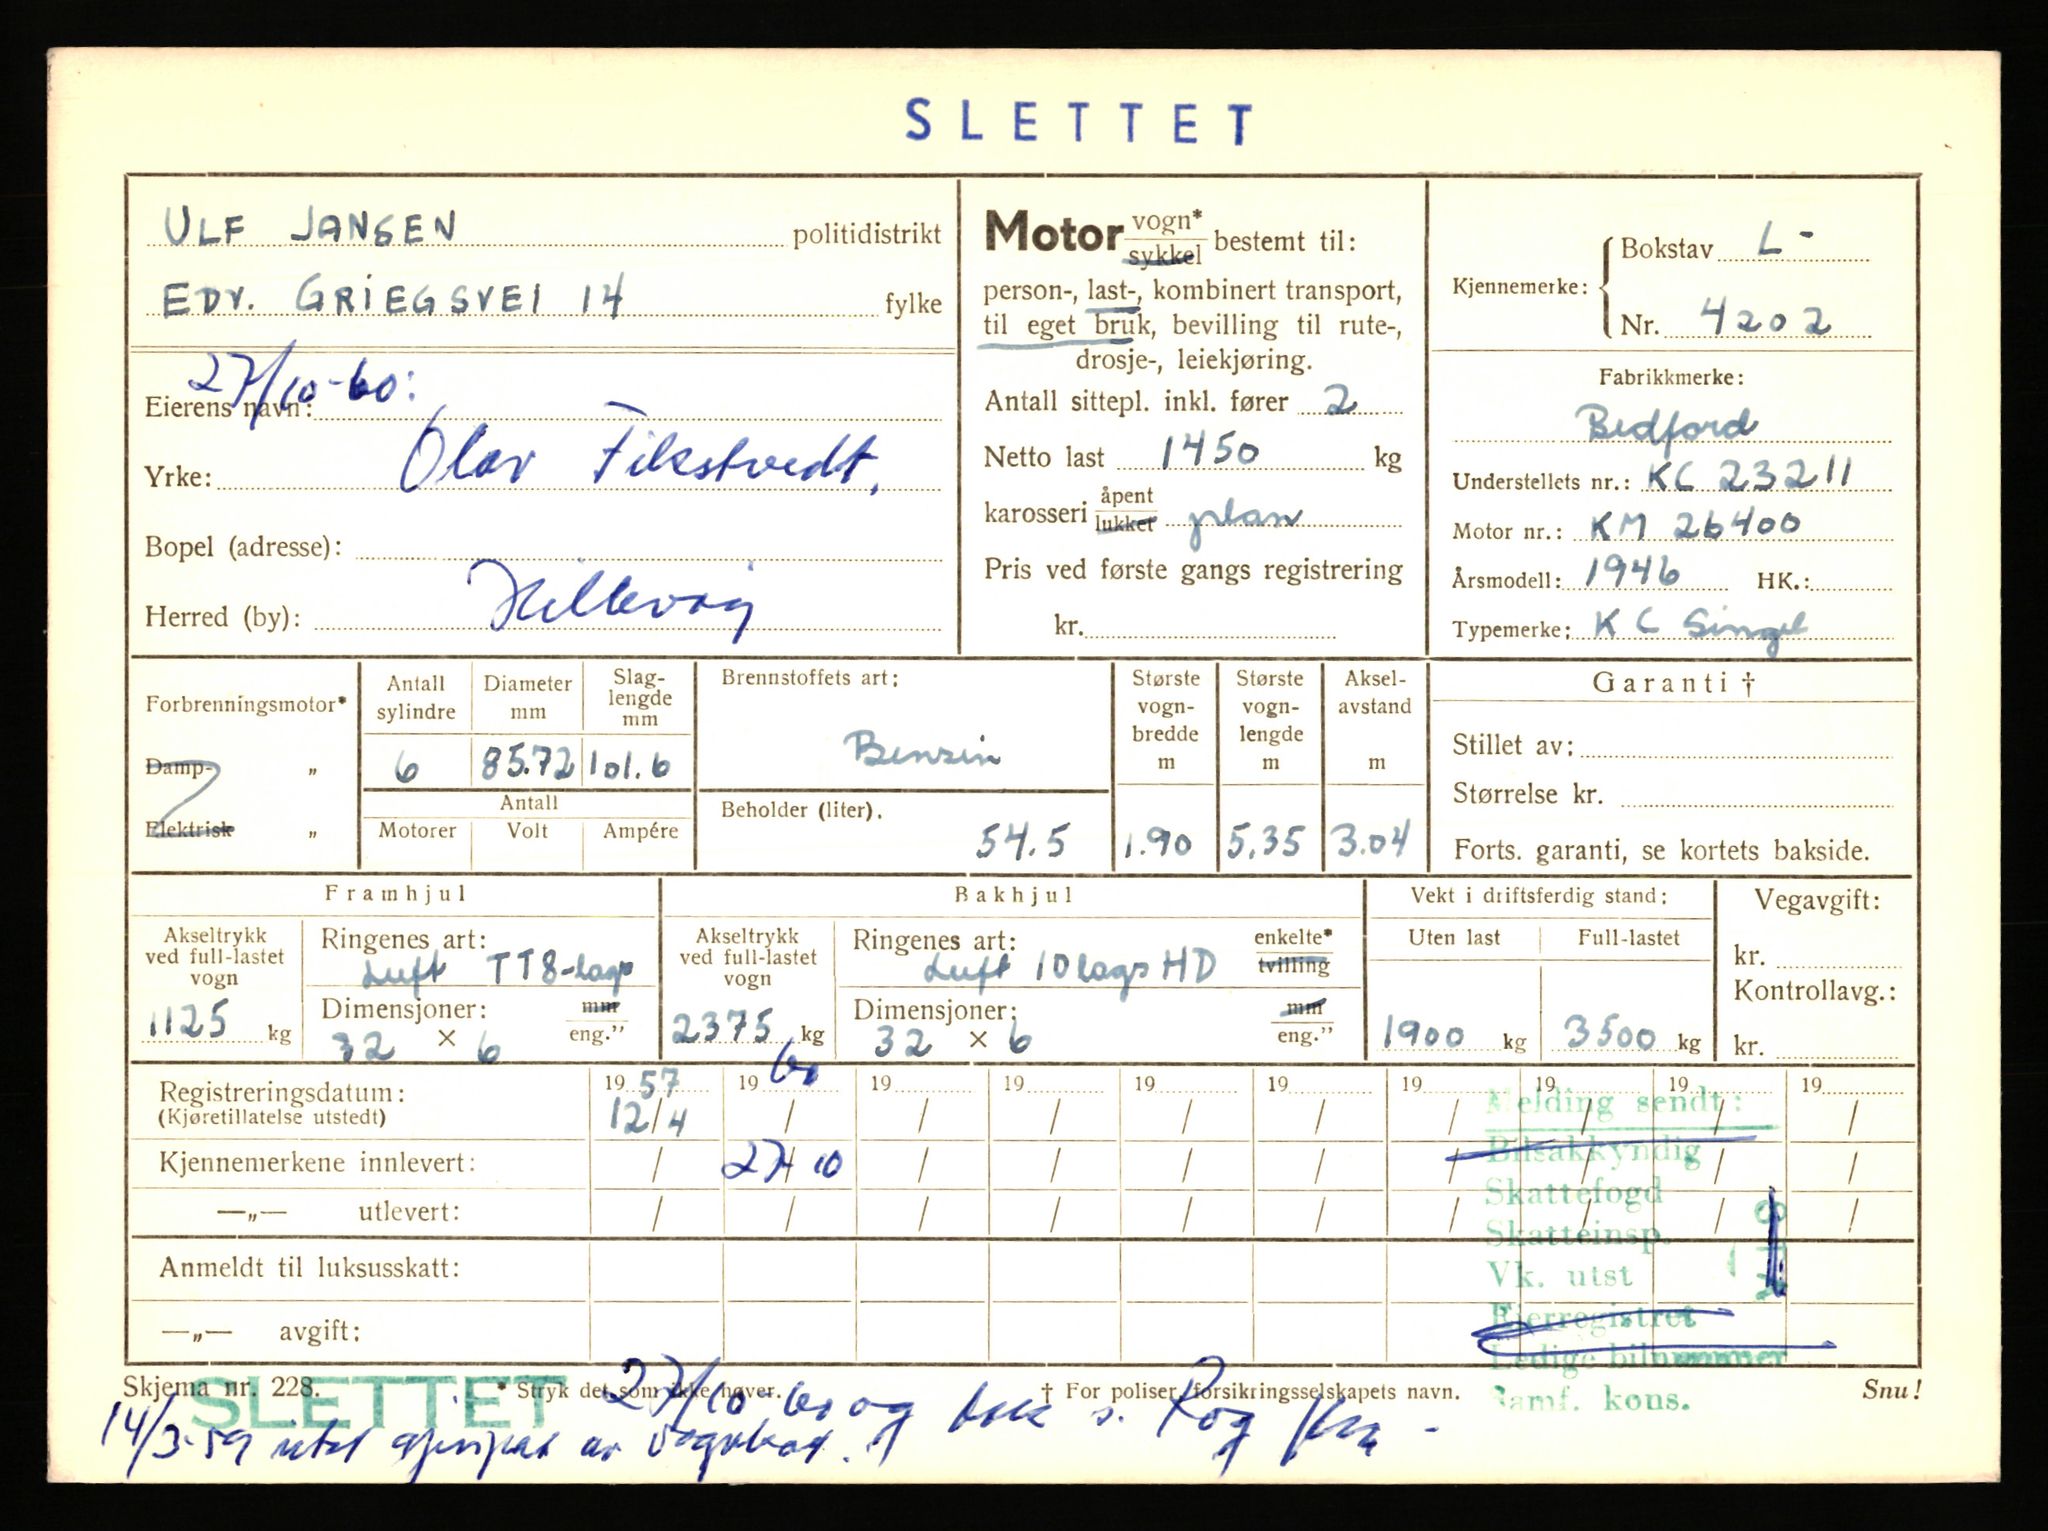 SLETTET
ULF JANSEN politidistrikt
EDV. GRIEGSVEI 14 fylke
27/10-60:
Eierens navn:
Yrke: Olav Fikstvedt,
Bopel (adresse):
Herred (by): Hillevåg
Motor vogn* sykkel bestemt til:
person-, last-, kombinert transport,
til eget bruk, bevilling til rute-,
drosje-, leiekjøring.
Antall sittepl. inkl. fører 2
Netto last 1450 kg
karosseri åpent lukket plan
Pris ved første gangs registrering
kr.
Kjennemerke: Bokstav L-
Nr. 4202
Fabrikkmerke:
Bedford
Understellets nr.: KC 23211
Motor nr.: KM 26400
Årsmodell: 1946 HK.:
Typemerke: KC Singel
Forbrenningsmotor*
Damp- „
Elektrisk „
Antall sylindre Diameter mm Slag-lengde mm
6 85.72 101.6
Antall
Motorer Volt Ampére
Brennstoffets art:
Bensin
Beholder (liter).
54.5
Største vogn-bredde m Største vogn-lengde m Aksel-avstand m
1.90 5,35 3.04
Garanti †
Stillet av:
Størrelse kr.
Forts. garanti, se kortets bakside.
Framhjul
Akseltrykk ved full-lastet vogn
1125 kg
Ringenes art:
Luft TT8-lags
Dimensjoner: mm
32 × 6 eng.”
Bakhjul
Akseltrykk ved full-lastet vogn
2375 kg
Ringenes art: enkelte*
Luft 10 lags HD tvilling
Dimensjoner: mm
32 × 6 eng.”
Vekt i driftsferdig stand:
Uten last Full-lastet
1900 kg 3500 kg
Vegavgift:
kr.
Kontrollavg.:
kr.
Registreringsdatum: 19 57 19 60 19 19 19 19 19 19 19 19
(Kjøretillatelse utstedt) 12/4 / / / / / / / / /
Kjennemerkene innlevert: / 27/10 / / / / / / / /
—„— utlevert: / / / / / / / / / /
Anmeldt til luksusskatt:
—„— avgift:
Melding sendt:
Bilsakkyndig
Skattefogd
Skatteinsp.
Vk. utst
Eierregistret
Ledige bilnummer
Samf. kons.
Skjema nr. 228. * Stryk det som ikke høver. † For poliser, forsikringsselskapets navn. Snu!
SLETTET
27/10-60 og
14/3-59 utst gjenpart av vognkort.